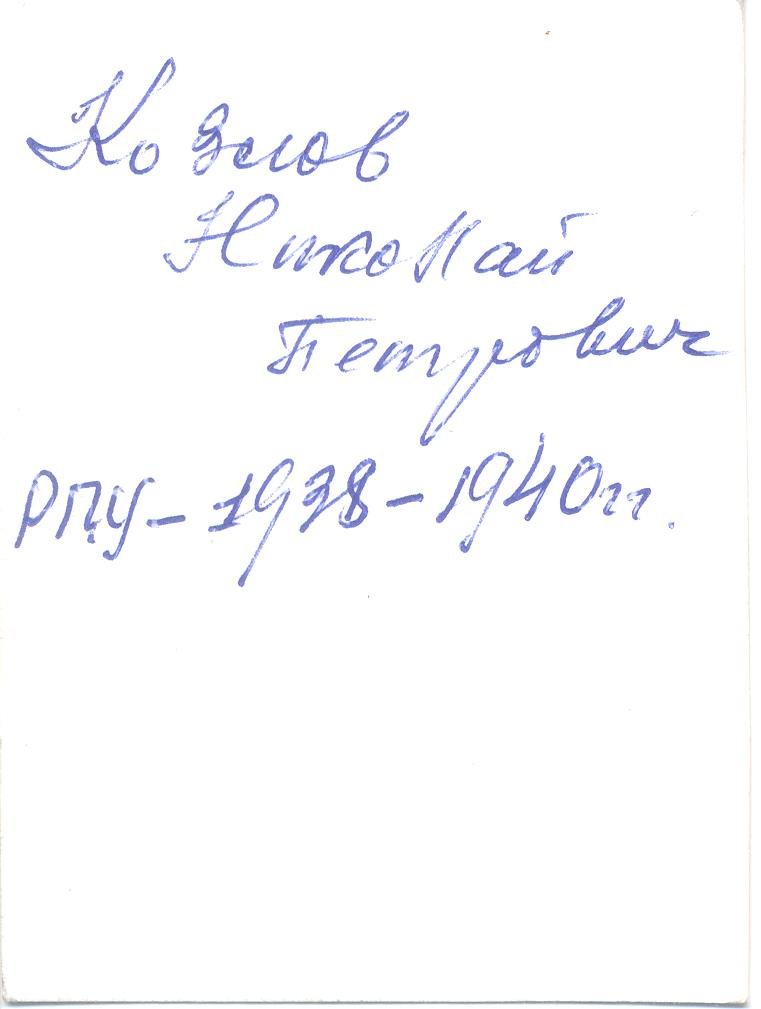 Козлов
Николай
Петрович
РПУ - 1938 - 1940 гг.